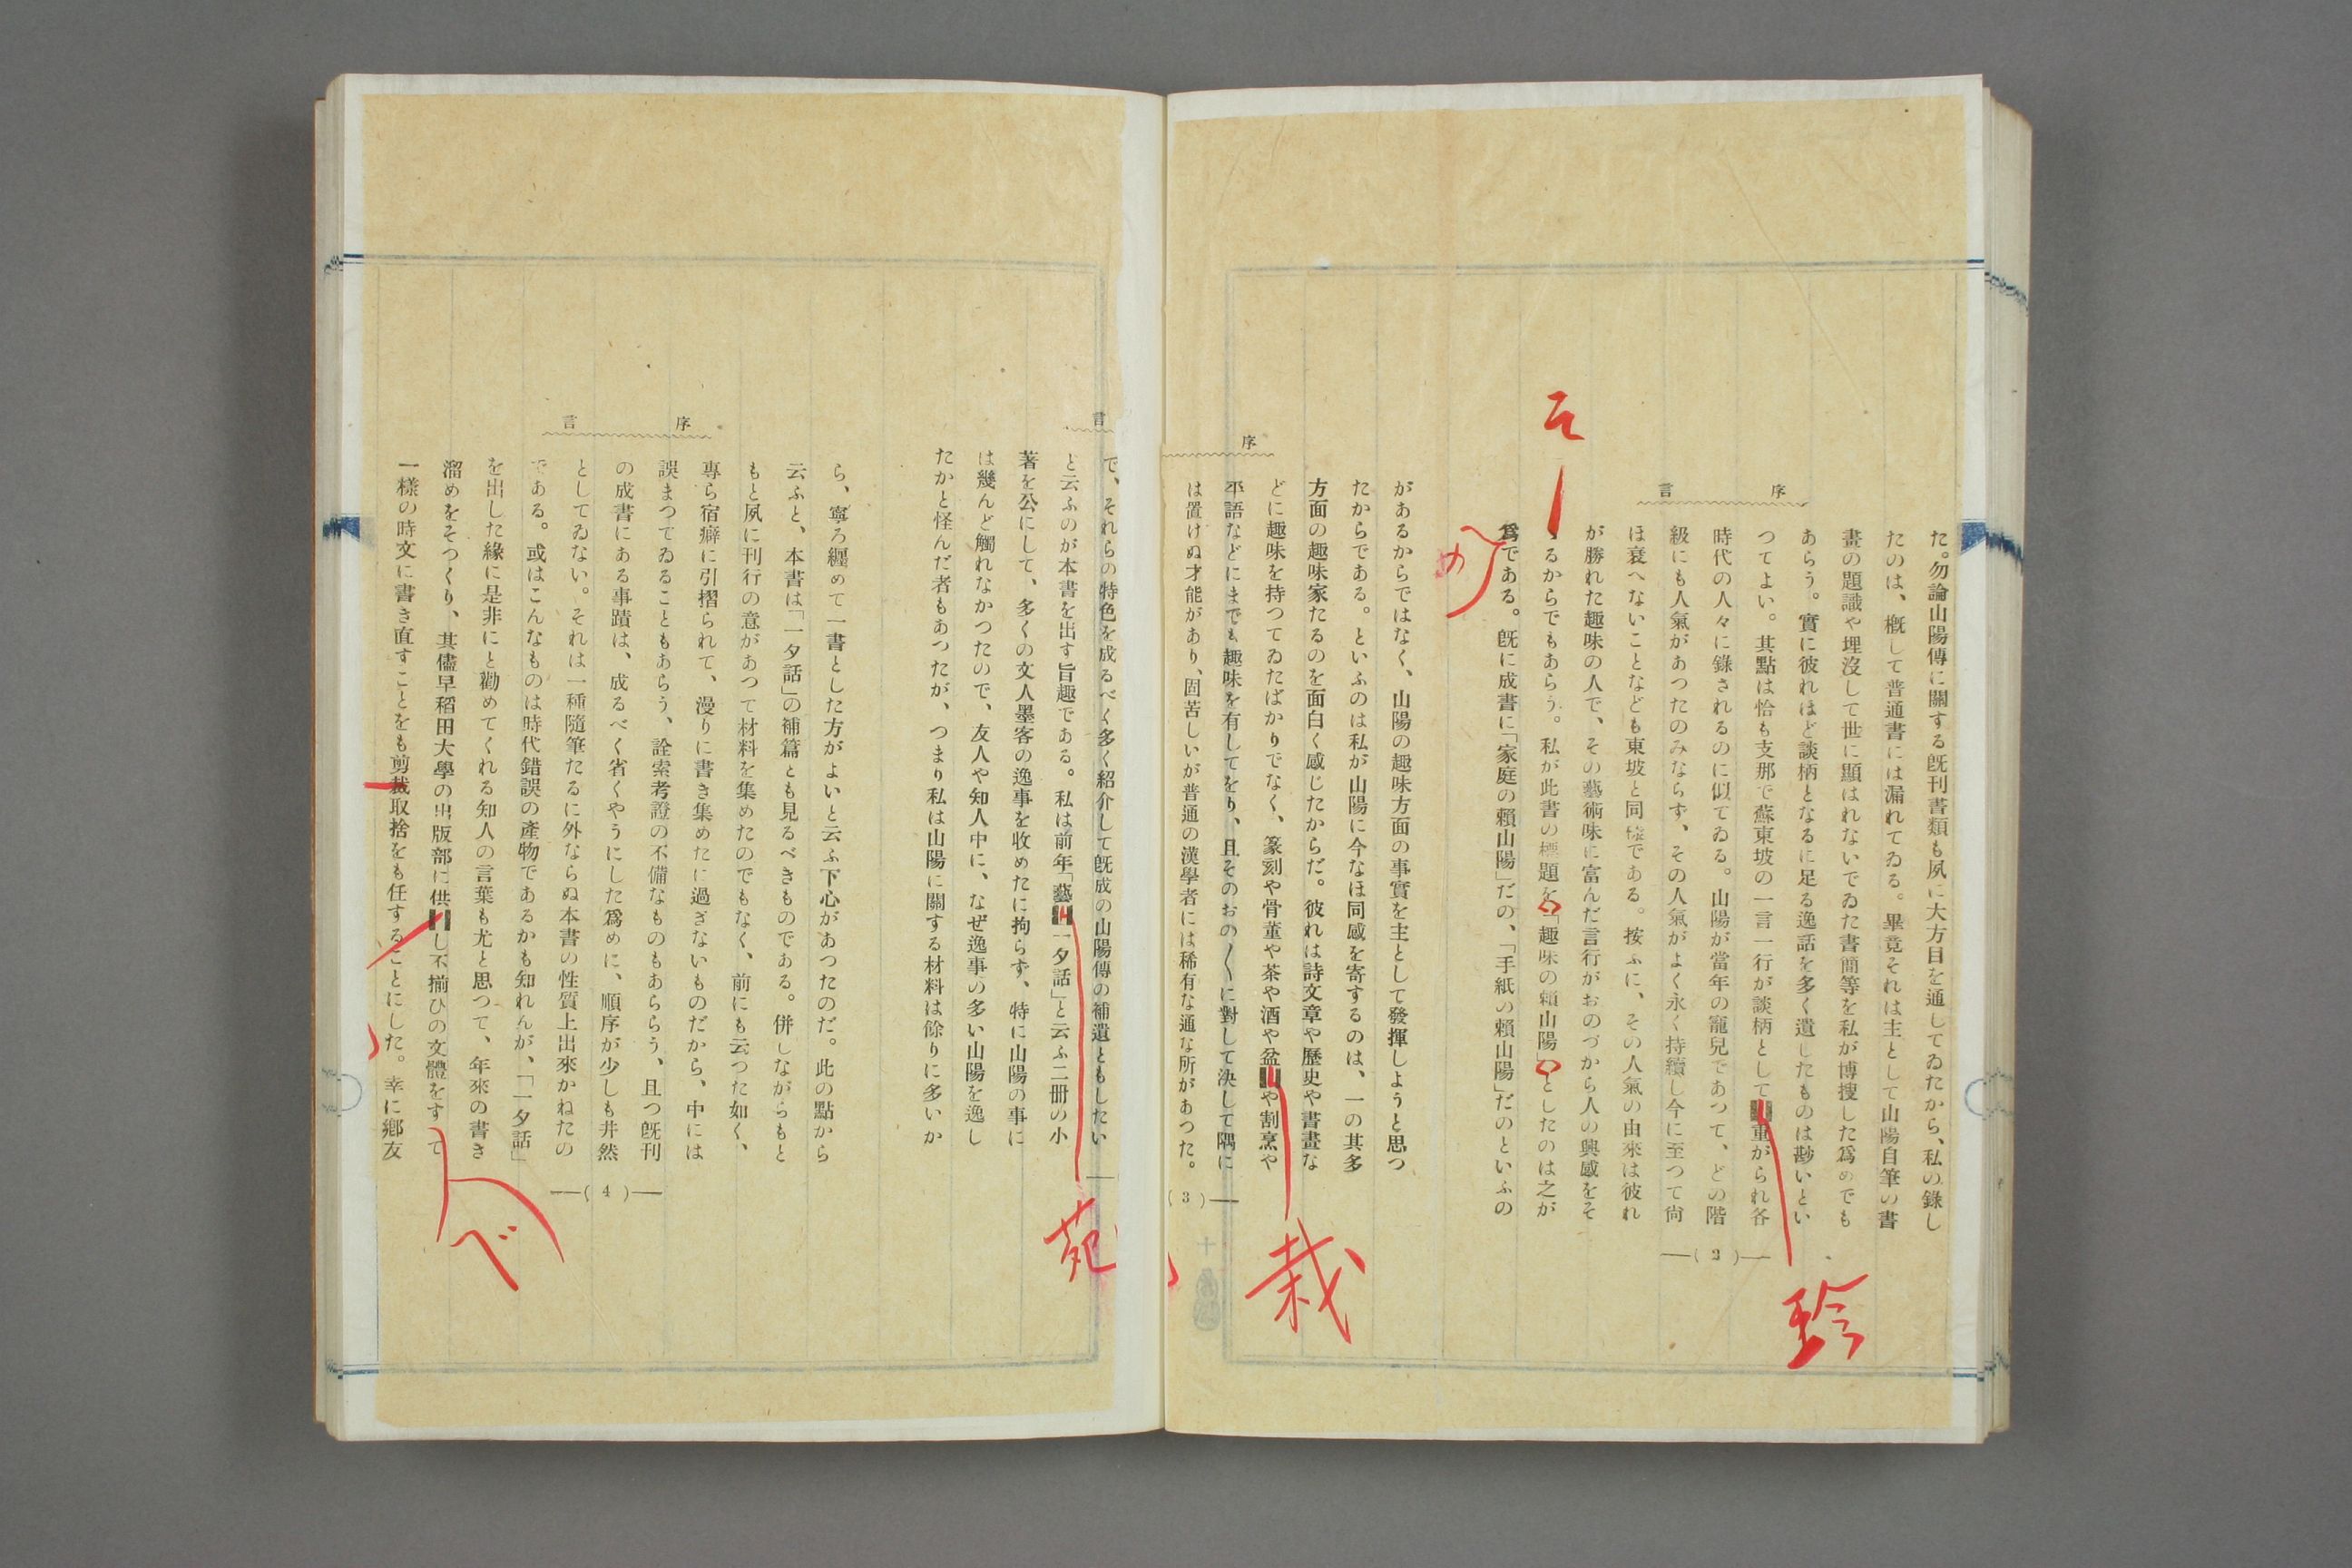 序言
た。勿論山陽傳に關する既刊書類も夙に大方目を通してゐたから、私の錄し
たのは、概して普通書には漏れてゐる。畢竟それは主として山陽自筆の書
畫の題識や埋沒して世に顯はれないでゐた書簡等を私が博搜した爲めでも
あらう。實に彼れほど談柄となるに足る逸話を多く遺したものは尠いとい
つてよい。其點は恰も支那で蘇東坡の一言一行が談柄として〓重がられ各
時代の人々に錄されるのに似てゐる。山陽が當年の寵兒であつて、どの階
級にも人氣があつたのみならず、その人氣がよく永く持續し今に至つて尙
ほ衰へないことなども東坡と同樣である。按ふに、その人氣の由來は彼れ
が勝れた趣味の人で、その藝術味に富んだ言行がおのづから人の興感をそ
るからでもあらう。私が此書の標題を「趣味の賴山陽」としたのは之が
爲である。既に成書に「家庭の賴山陽」だの、「手紙の賴山陽」だのといふの
(2)
珍
そ
め
序
があるからではなく、山陽の趣味方面の事實を主として發揮しようと思つ
たからである。といふのは私が山陽に今なほ同感を寄するのは、一の其多
方面の趣味家たるのを面白く感じたからだ。彼れは詩文章や歷史や書畫な
どに趣味を持つてゐたばかりでなく、篆刻や骨董や茶や酒や盆〓や割烹や
平語などにまでも趣味を有してをり、且そのおの〱に對して決して隅に
は置けぬ才能があり、固苦しいが普通の漢學者には稀有な通な所があつた。
(3)
栽
言
で、それらの特色を成るべく多く紹介して既成の山陽傳の補遺ともしたい
と云ふのが本書を出す旨趣である。私は前年「藝〓一夕話」と云ふ二册の小
著を公にして、多くの文人墨客の逸事を收めたに拘らず、特に山陽の事に
は幾んど觸れなかつたので、友人や知人中に、なぜ逸事の多い山陽を逸し
たかと怪んだ者もあつたが、つまり私は山陽に關する材料は餘りに多いか
苑
序言
ら、寧ろ纒めて一書とした方がよいと云ふ下心があつたのだ。此の點から
云ふと、本書は「一夕話」の補篇とも見るべきものである。併しながらもと
もと夙に刊行の意があつて材料を集めたのでもなく、前にも云つた如く、
專ら宿癖に引摺られて、漫りに書き集めたに過ぎないものだから、中には
誤まつてゐることもあらう、詮索考證の不備なものもあららう、且つ既刊
の成書にある事蹟は、成るべく省くやうにした爲めに、順序が少しも井然
としてゐない。それは一種隨筆たるに外ならぬ本書の性質上出來かねたの
である。或はこんなものは時代錯誤の產物であるかも知れんが、「一夕話」
を出した緣に是非にと勸めてくれる知人の言葉も尤と思つて、年來の書き
溜めをそつくり、其儘早稻田大學の出版部に供〓し不揃ひの文體をすて
一樣の時文に書き直すことをも剪裁取捨をも任することにした。幸に鄕友
(4)
べ